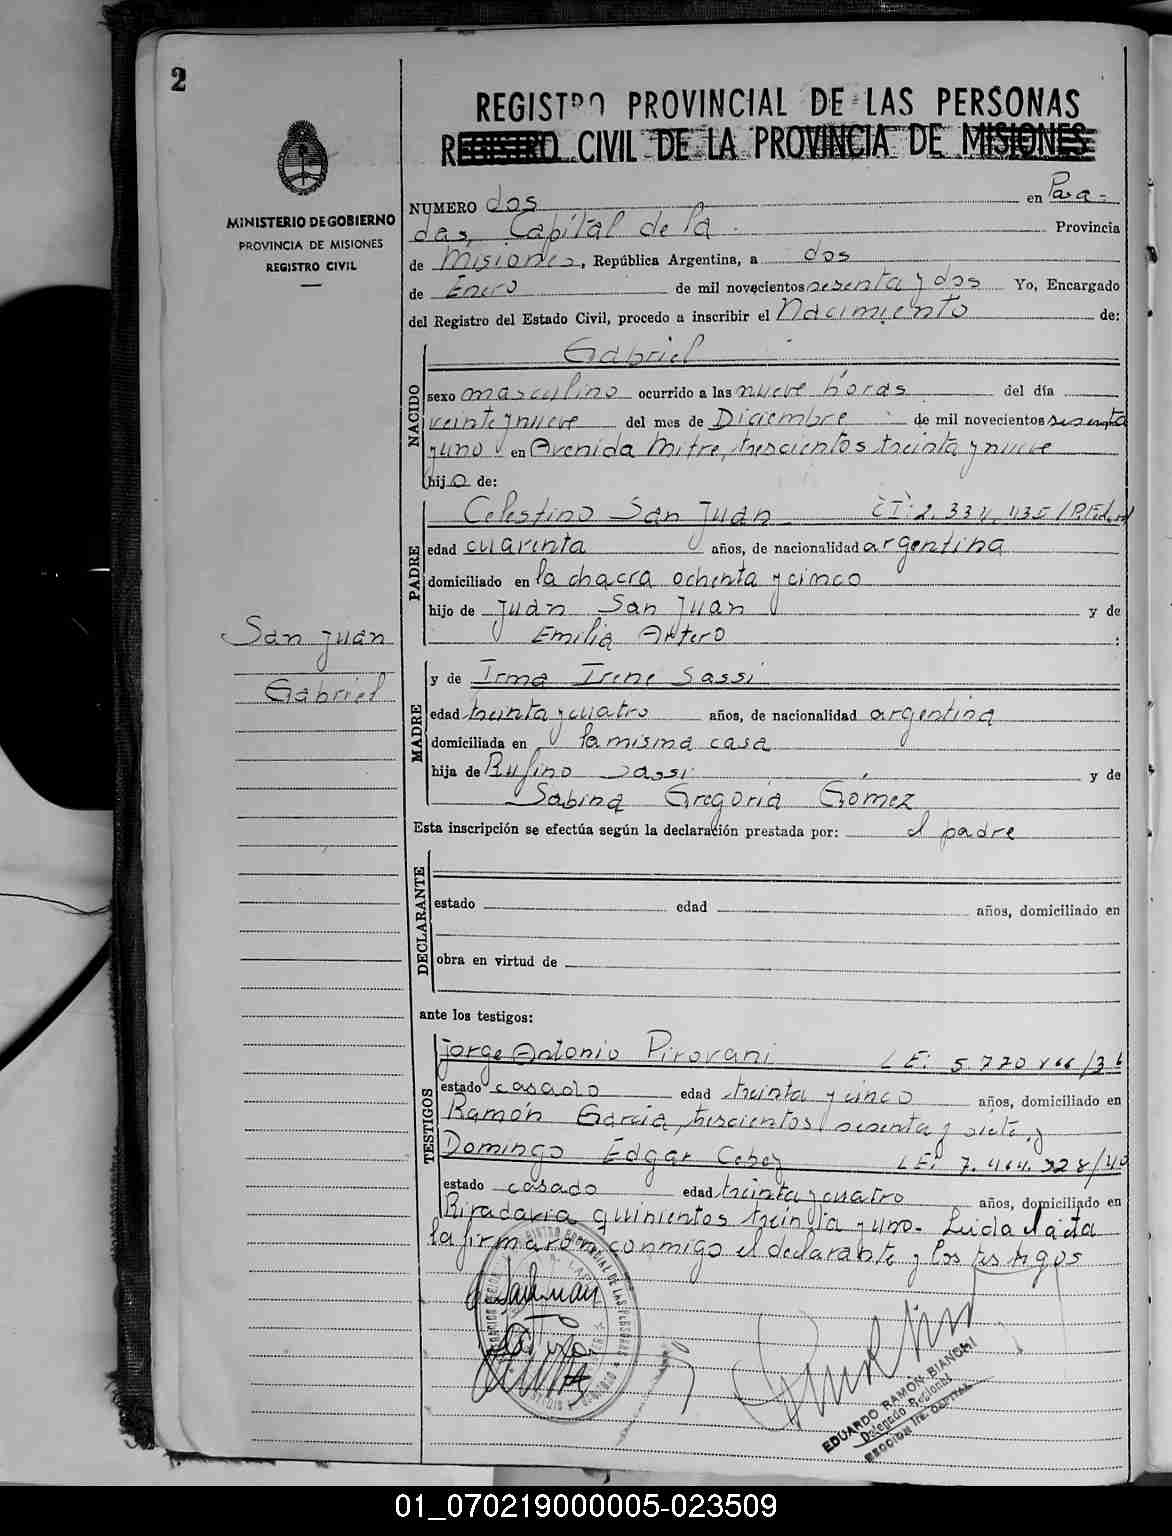 2
REGISTRO PROVINCIAL DE LAS PERSONAS
REGISTRO CIVIL DE LA PROVINCIA DE MISIONES
MINISTERIO DE GOBIERNO
PROVINCIA DE MISIONES
REGISTRO CIVIL
NUMERO dos en Posa-
das, Capital de la Provincia
de Misiones, República Argentina, a dos
de Enero de mil novecientos sesenta y dos Yo, Encargado
del Registro del Estado Civil, procedo a inscribir el Nacimiento de:
NACIDO
Gabriel
sexo masculino ocurrido a las nueve horas del día
veinte y nueve del mes de Diciembre de mil novecientos sesenta
y uno en Avenida Mitre, trescientos treinta y nueve
hijo de:
PADRE
Celestino San Juan CI: 2.334.435/P.Federal
edad cuarenta años, de nacionalidad argentina
domiciliado en la chacra ochenta y cinco
hijo de Juan San Juan y de
Emilia Artero :
San Juan
Gabriel
MADRE
y de Irma Irene Sassi
edad treinta y cuatro años, de nacionalidad argentina
domiciliada en la misma casa
hija de Rufino Sassi y de
Sabina Gregoria Gómez
Esta inscripción se efectúa según la declaración prestada por: el padre
DECLARANTE
estado edad años, domiciliado en
obra en virtud de
ante los testigos:
TESTIGOS
Jorge Antonio Pirovani LE: 5.770
estado casado edad treinta y cinco años, domiciliado en
Ramón García, trescientos sesenta y siete, y
Domingo Edgar LE: 7.464.328/40
estado casado edad treinta y cuatro años, domiciliado en
Rivadavia quinientos treinta y uno. Leida el acta
la firmaron conmigo el declarante y los testigos
EDUARDO RAMON BIANCHI
Delegado Regional
SECCION 1ra. CAPITAL
01_070219000005-023509